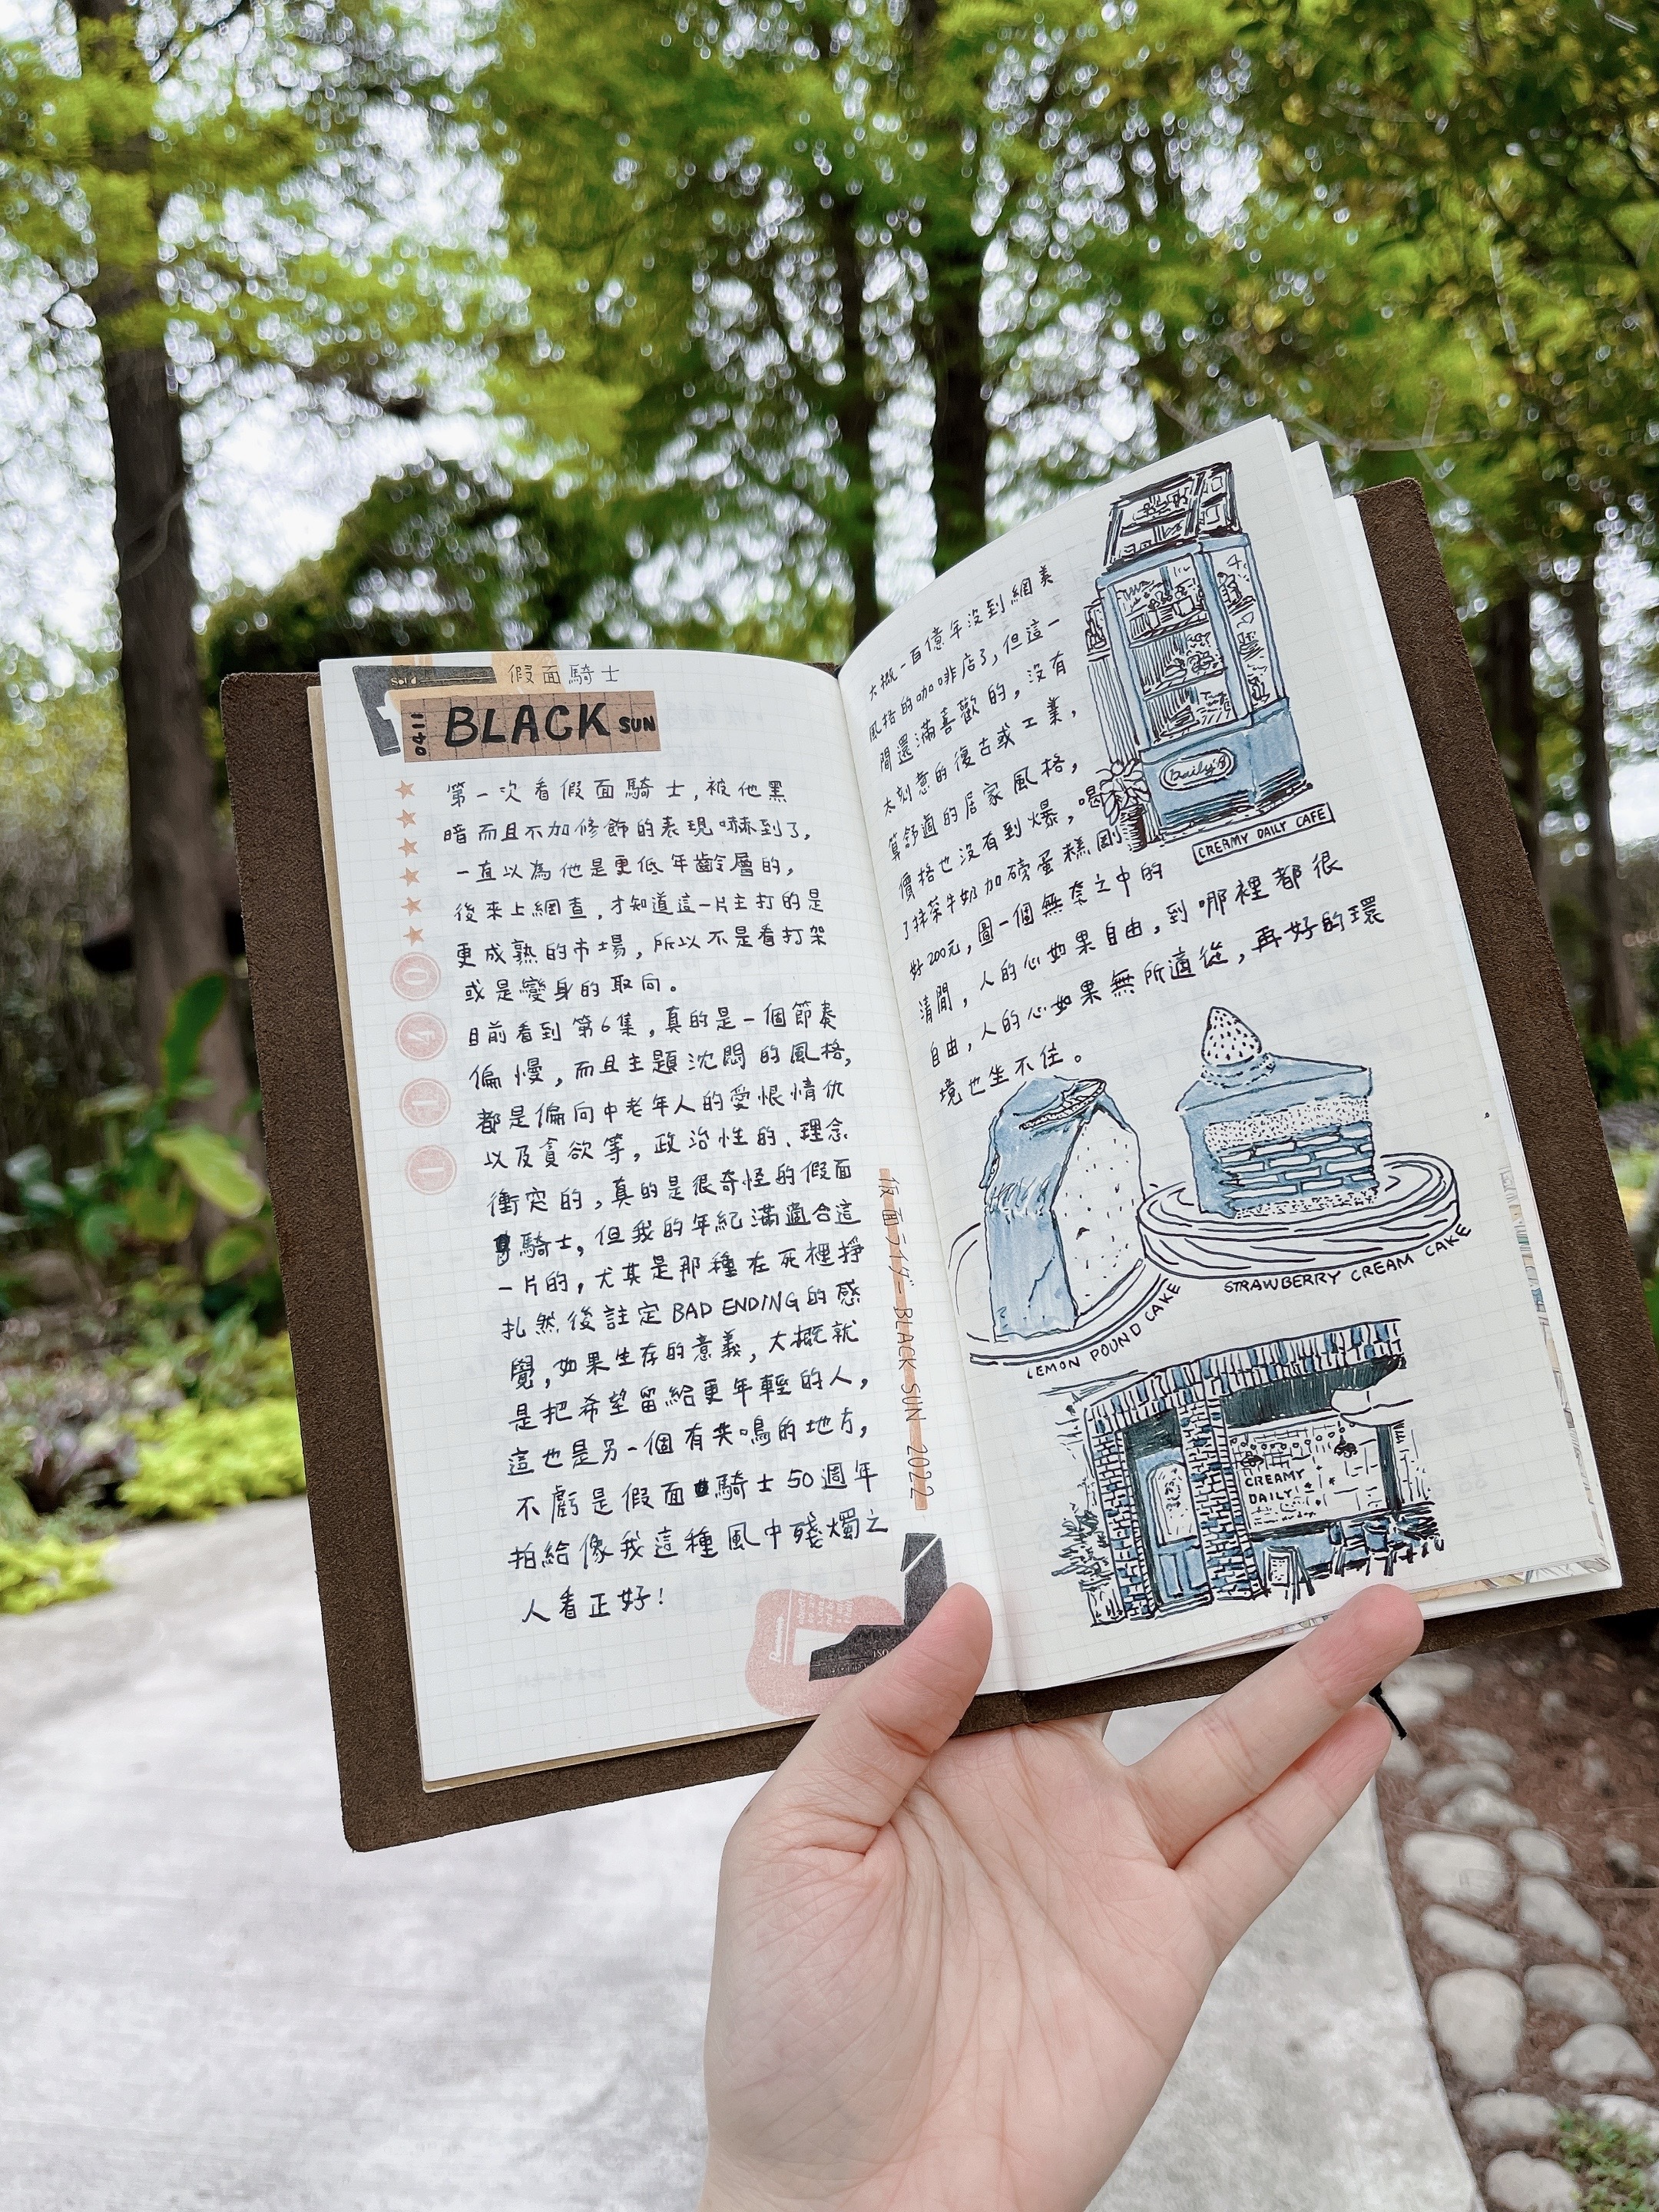 假面騎士
0411 BLACK SUN
第一次看假面騎士,被他黑
暗而且不加修飾的表現嚇到了,
一直以為他是更低年齡層的,
後來上網查,才知道這一片主打的是
更成熟的市場,所以不是看打架
或是變身的取向。
目前看到第6集,真的是一個節奏
偏慢,而且主題沈悶的風格,
都是偏向中老年人的愛恨情仇
以及貪欲等,政治性的、理念
衝突的,真的是很奇怪的假面
騎士,但我的年紀滿適合這
一片的,尤其是那種在死裡掙
扎然後註定BAD ENDING的感
覺,如果生存的意義,大概就
是把希望留給更年輕的人,
這也是另一個有共鳴的地方,
不虧是假面騎士50週年
拍給像我這種風中殘燭之
人看正好!
0
4
1
1
仮面ライダー BLACK SUN 2022
大概一百億年沒到網美
風格的咖啡店了,但這一
間還滿喜歡的,沒有
太刻意的復古或工業,
算舒適的居家風格,
價格也沒有到爆,喝
了抹茶牛奶加磅蛋糕剛
好200元,圖一個無奈之中的
清閒,人的心如果自由,到哪裡都很
自由,人的心如果無所適從,再好的環
境也坐不住。
Daily's
CREAMY DAILY CAFE
LEMON POUND CAKE
STRAWBERRY CREAM CAKE
CREAMY
DAILY